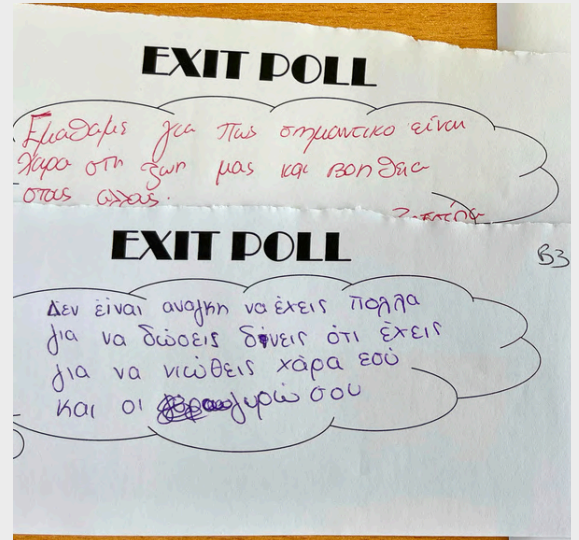 EXIT POLL
Εμαθαμε για πως σημαντικο είναι
χαρα στη ζωη μας και βοηθεια
στους αλλους.
EXIT POLL
B3
Δεν είναι αναγκη να έχεις πολλα
για να δώσεις δίνεις ότι έχεις
για να νιώθεις χάρα εσύ
και οι γυρω σου